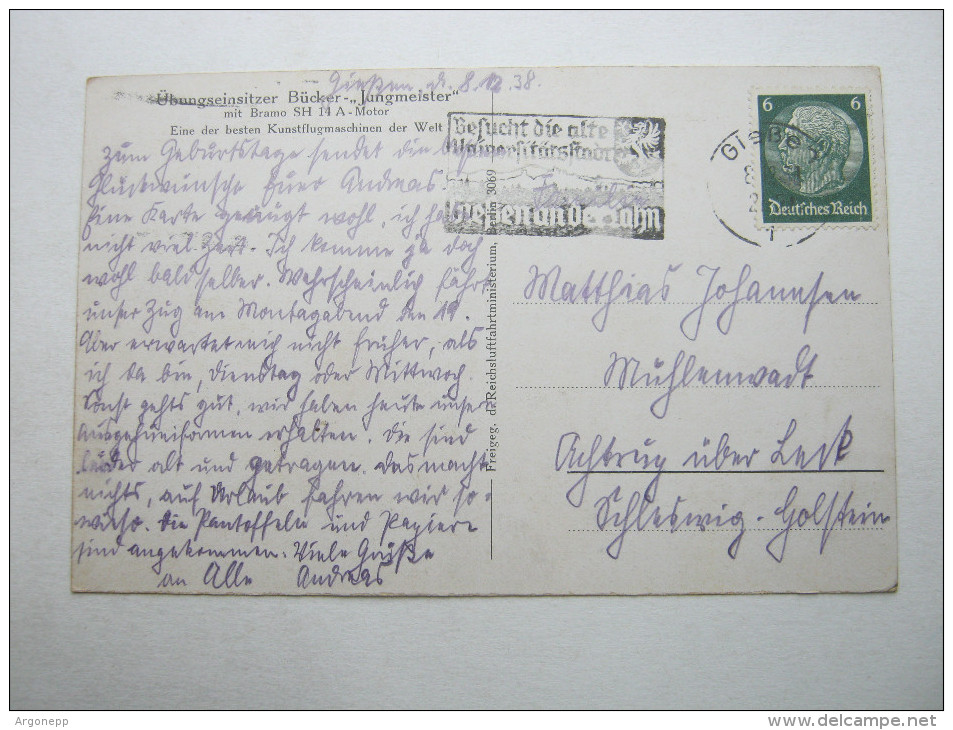 Gießen d. 8.12.38.
Übungseinsitzer Bücker-„Jungmeister“
mit Bramo SH 14 A-Motor
Eine der besten Kunstflugmaschinen der Welt
Zum Geburtstage sendet die besten
Glückwünsche Euer Andreas.
Eine Karte genügt wohl, ich habe
nicht viel Zeit. Ich komme ja doch
wohl bald selber. Wahrscheinlich fährt
unser Zug am Montagabend den 19.
Aber erwartet mich nicht früher, als
ich da bin, Dienstag oder Mittwoch.
Sonst gehts gut, wir haben heute unsere
Ausgehuniformen erhalten. Die sind
leider alt und getragen. Das macht
nichts, auf Urlaub fahren wir so-
wieso. Die Pantoffeln und Papiere
sind angekommen. Viele Grüße
an Alle Andreas
Freigeg. d. Reichsluftfahrtministerium, Berlin 3069
Besucht die alte
Universitätsstadt
Gießen an der Lahn
Gießen
1
6 6
Deutsches Reich
Matthias Johannsen
Mühlenwadt
Achtrup über Leck
Schleswig-Holstein
Argonepp
www.delcampe.net